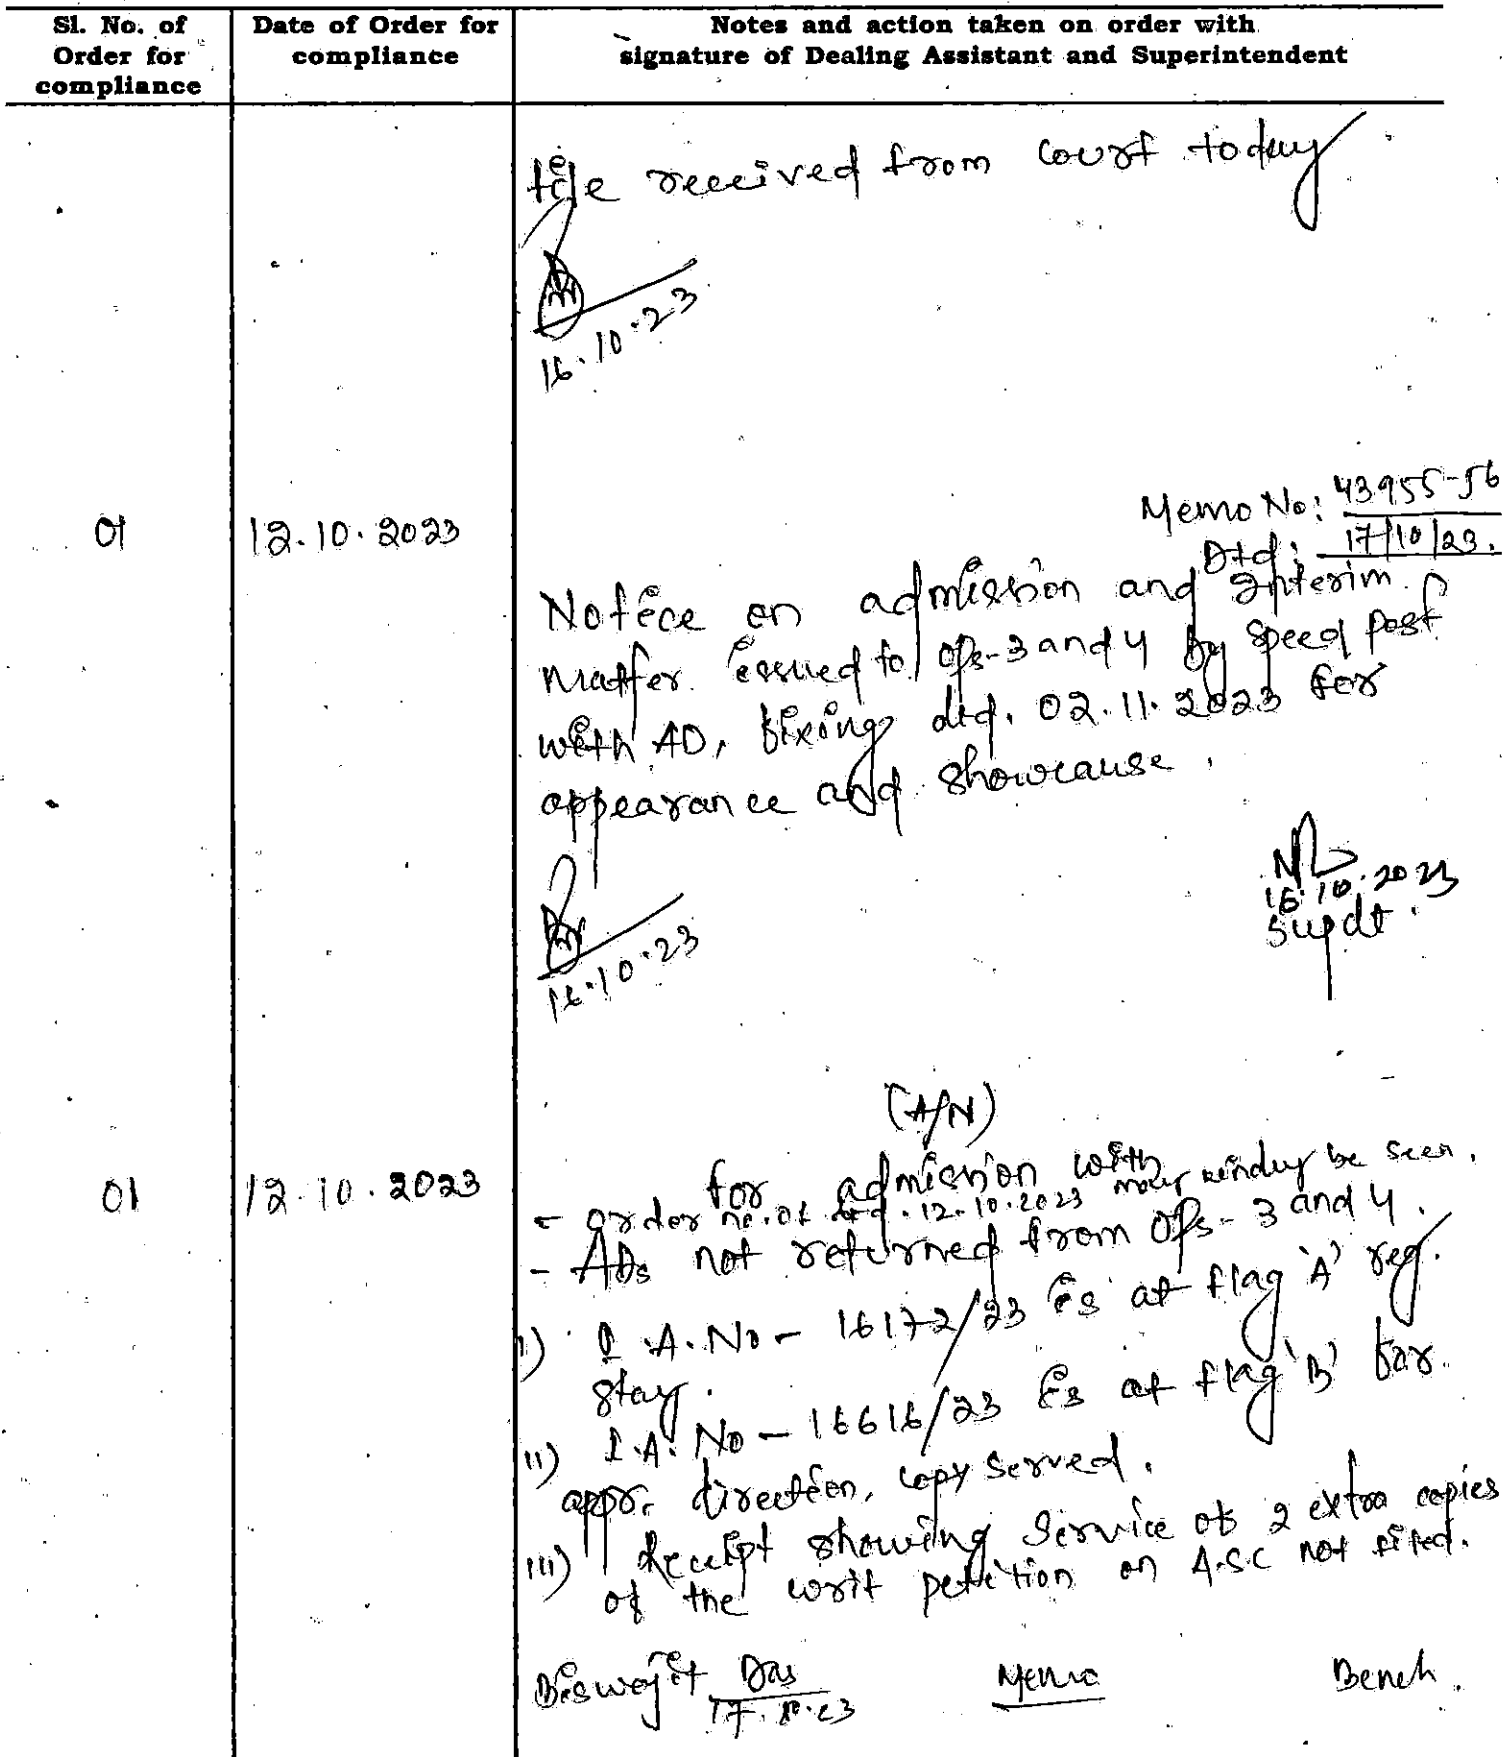 Sl. No. of Order for compliance
Date of Order for compliance
Notes and action taken on order with signature of Dealing Assistant and Superintendent
file received from court today
16.10.23
Memo No: 43955-56
Dtd: 17/10/23.
01
12.10.2023
Notice on admission and Interim
matter issued to Ops-3 and 4 by speed post
with AD, fixing dtd. 02.11.2023 for
appearance and showcause.
16.10.2023
Supdt.
16.10.23
(A/N)
01
12.10.2023
for admission with
- order no. 01 dtd. 12.10.2023 may kindly be seen.
- ADs not returned from Ops-3 and 4.
i) I.A. No - 16172/23 is at flag 'A' reg.
stay.
ii) I.A. No - 16616/23 is at flag 'B' for
appr. direction, copy served.
iii) Receipt showing service of 2 extra copies
of the writ petition on A.S.C not filed.
Biswajit Das
17.10.23
Memo
Bench.